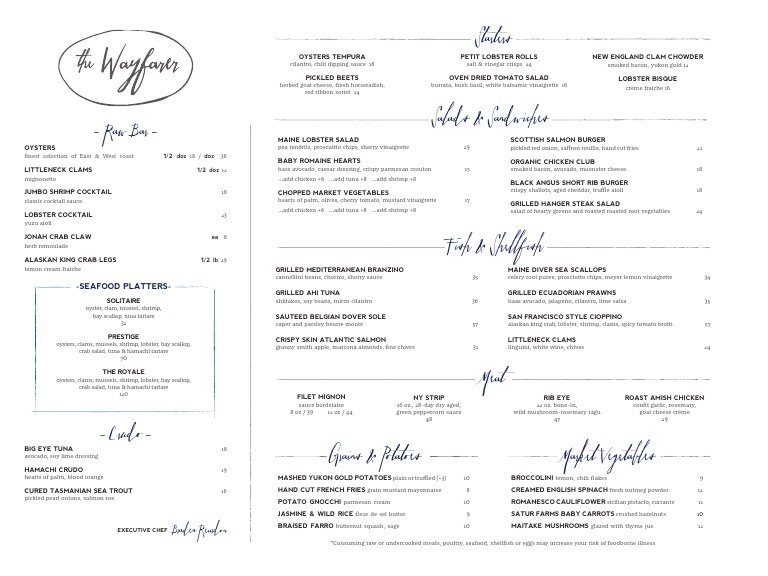 the Wayfarer
- Raw Bar -
OYSTERS
finest selection of East & West coast 1/2 doz 18 / doz 36
LITTLENECK CLAMS 1/2 doz 12
mignonette
JUMBO SHRIMP COCKTAIL 18
classic cocktail sauce
LOBSTER COCKTAIL 23
yuzu aioli
JONAH CRAB CLAW ea 8
herb remoulade
ALASKAN KING CRAB LEGS 1/2 lb 29
lemon creme fraiche
-SEAFOOD PLATTERS-
SOLITAIRE
oyster, clam, mussel, shrimp,
bay scallop, tuna tartare
32
PRESTIGE
oysters, clams, mussels, shrimp, lobster, bay scallop,
crab salad, tuna & hamachi tartare
70
THE ROYALE
oysters, clams, mussels, shrimp, lobster, bay scallop,
crab salad, tuna & hamachi tartare
120
- Crudo -
BIG EYE TUNA 18
avocado, soy lime dressing
HAMACHI CRUDO 19
hearts of palm, blood orange
CURED TASMANIAN SEA TROUT 16
pickled pearl onions, salmon roe
EXECUTIVE CHEF Braden Reardon
Starters
OYSTERS TEMPURA
cilantro, chili dipping sauce 18
PICKLED BEETS
herbed goat cheese, fresh horseradish,
red ribbon sorrel 14
PETIT LOBSTER ROLLS
salt & vinegar crisps 24
OVEN DRIED TOMATO SALAD
burrata, bush basil, white balsamic vinaigrette 16
NEW ENGLAND CLAM CHOWDER
smoked bacon, yukon gold 12
LOBSTER BISQUE
crème fraiche 16
Salads & Sandwiches
MAINE LOBSTER SALAD
pea tendrils, prosciutto chips, sherry vinaigrette 29
BABY ROMAINE HEARTS
hass avocado, caesar dressing, crispy parmesan crouton 15
...add chicken +6 ...add tuna +8 ...add shrimp +8
CHOPPED MARKET VEGETABLES
hearts of palm, olives, cherry tomato, mustard vinaigrette 17
...add chicken +6 ...add tuna +8 ...add shrimp +8
SCOTTISH SALMON BURGER
pickled red onion, saffron rouille, hand cut fries 21
ORGANIC CHICKEN CLUB
smoked bacon, avocado, muenster cheese 18
BLACK ANGUS SHORT RIB BURGER
crispy shallots, aged cheddar, truffle aioli 18
GRILLED HANGER STEAK SALAD
salad of hearty greens and roasted roasted root vegetables 24
Fish & Shellfish
GRILLED MEDITERRANEAN BRANZINO
cannellini beans, chorizo, sherry sauce 35
GRILLED AHI TUNA
shiitakes, soy beans, micro cilantro 36
SAUTEED BELGIAN DOVER SOLE
caper and parsley beurre monté 57
CRISPY SKIN ATLANTIC SALMON
granny smith apple, marcona almonds, fine chives 31
MAINE DIVER SEA SCALLOPS
celery root puree, prosciutto chips, meyer lemon vinaigrette 34
GRILLED ECUADORIAN PRAWNS
haas avocado, jalapeño, cilantro, lime salsa 35
SAN FRANCISCO STYLE CIOPPINO
alaskan king crab, lobster, shrimp, clams, spicy tomato broth 57
LITTLENECK CLAMS
linguini, white wine, chives 24
Meat
FILET MIGNON
sauce bordelaise
8 oz / 39 12 oz / 44
NY STRIP
16 oz., 28-day dry aged,
green peppercorn sauce
48
RIB EYE
22 oz. bone-in,
wild mushroom-rosemary ragu
47
ROAST AMISH CHICKEN
confit garlic, rosemary,
goat cheese crème
29
Grains & Potatoes
MASHED YUKON GOLD POTATOES plain or truffled (+3) 10
HAND CUT FRENCH FRIES grain mustard mayonnaise 8
POTATO GNOCCHI parmesan cream 10
JASMINE & WILD RICE fleur de sel butter 9
BRAISED FARRO butternut squash, sage 10
Market Vegetables
BROCCOLINI lemon, chili flakes 9
CREAMED ENGLISH SPINACH fresh nutmeg powder 12
ROMANESCO CAULIFLOWER sicilian pistacio, currants 11
SATUR FARMS BABY CARROTS crushed hazelnuts 10
MAITAKE MUSHROOMS glazed with thyme jus 12
*Consuming raw or undercooked meats, poultry, seafood, shellfish or eggs may increase your risk of foodborne illness